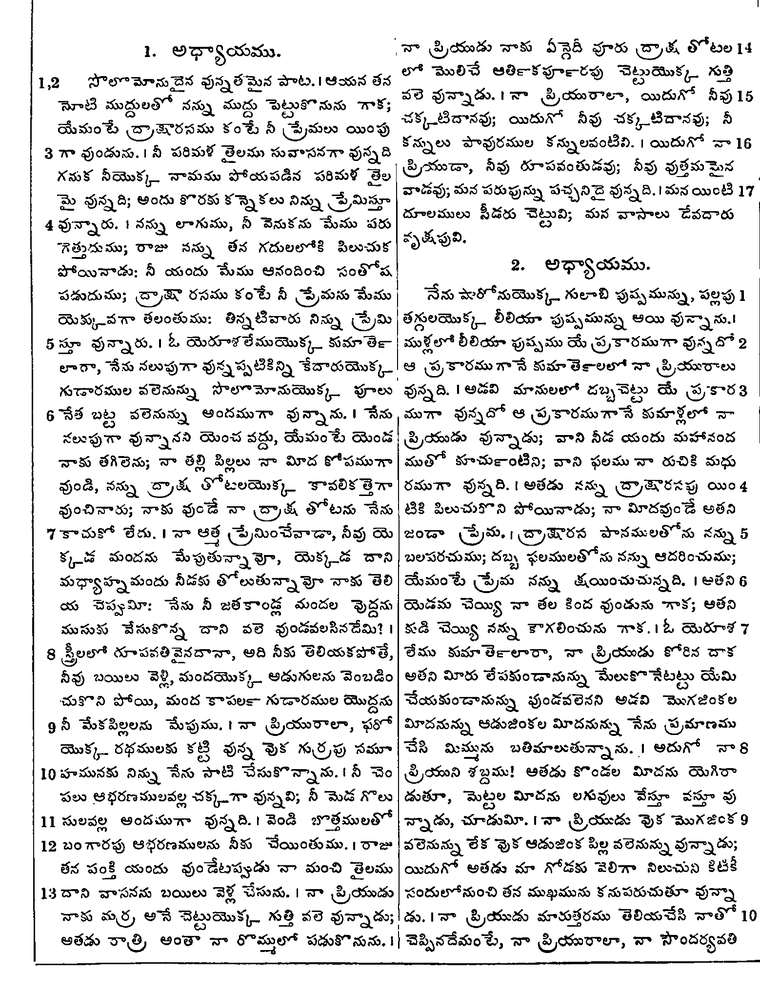 1. అధ్యాయము.
1,2 సోలొమోనుదైన వున్నతమైన పాట. । ఆయన తన
నోటి ముద్దులతో నన్ను ముద్దు పెట్టుకొనును గాక;
యేమంటే ద్రాక్షారసము కంటే నీ ప్రేమలు యింపు
3 గా వుండును. । నీ పరిమళ తైలము సువాసనగా వున్నది
గనుక నీయొక్క నామము పోయపడిన పరిమళ తైల
మై వున్నది; అందు కొరకు కన్నెకలు నిన్ను ప్రేమిస్తూ
4 వున్నారు. । నన్ను లాగుము, నీ వెనుకను మేము పరు
గెత్తుదుము; రాజు నన్ను తన గదులలోకి పిలుచుక
పోయినాడు: నీ యందు మేము ఆనందించి సంతోష
పడుదుము; ద్రాక్షా రసము కంటే నీ ప్రేమను మేము
యెక్కువగా తలంతుము: తిన్నటివారు నిన్ను ప్రేమి
5 స్తూ వున్నారు. । ఓ యెరూశలేముయొక్క కుమార్తె
లారా, నేను నలుపుగా వున్నప్పటికిన్ని కేదారుయొక్క
గుడారముల వలెనున్ను సోలొమోనుయొక్క పూలు
6 నేత బట్ట వలెనున్ను అందముగా వున్నాను. । నేను
నలుపుగా వున్నానని యెంచ వద్దు, యేమంటే యెండ
నాకు తగిలెను; నా తల్లి పిల్లలు నా మీద కోపముగా
వుండి, నన్ను ద్రాక్ష తోటలయొక్క కావలికత్తెగా
వుంచినారు; నాకు వుండే నా ద్రాక్ష తోటను నేను
7 కాచుకో లేదు. । నా ఆత్మ ప్రేమించేవాడా, నీవు యె
క్కడ మందను మేపుతున్నావో, యెక్కడ దాని
మధ్యాహ్నమందు నీడకు తోలుతున్నావో నాకు తెలి
య చెప్పుమీ: నేను నీ జతకాండ్ల మందల వొద్దను
ముసుకు వేసుకొన్న దాని వలె వుండవలసినదేమి? ।
8 స్త్రీలలో రూపవతివైనదానా, అది నీకు తెలియకపోతే,
నీవు బయిలు వెళ్లి, మందయొక్క అడుగులను వెంబడిం
చుకొని పోయి, మంద కాపర్ల గుడారముల యొద్దను
9 నీ మేకపిల్లలను మేపుము. । నా ప్రియురాలా, ఫరో
యొక్క రథములకు కట్టి వున్న వొక గుర్రపు సమూ
10 హమునకు నిన్ను నేను సాటి చేసుకొన్నాను. । నీ చెం
పలు ఆభరణములవల్ల చక్కగా వున్నవి; నీ మెడ గొలు
11 సులవల్ల అందముగా వున్నది. । వెండి బొత్తములతో
12 బంగారపు ఆభరణములను నీకు చేయింతుము. । రాజు
తన పంక్తి యందు వుండేటప్పుడు నా మంచి తైలము
13 దాని వాసనను బయిలు వెళ్ల చేసును. । నా ప్రియుడు
నాకు మర్ర అనే చెట్టుయొక్క గుత్తి వలె వున్నాడు;
అతడు రాత్రి అంతా నా రొమ్ములో పడుకొనును. ।
నా ప్రియుడు నాకు ఏన్గెదీ వూరు ద్రాక్ష తోటల 14
లో మొలిచే ఆర్తికర్పూరపు చెట్టుయొక్క గుత్తి
వలె వున్నాడు. । నా ప్రియురాలా, యిదుగో నీవు 15
చక్కటిదానవు; యిదుగో నీవు చక్కటిదానవు; నీ
కన్నులు పావురముల కన్నులవంటివి. । యిదుగో నా 16
ప్రియుడా, నీవు రూపవంతుడవు; నీవు వుత్తమమైన
వాడవు; మన పరుపున్ను పచ్చనిదై వున్నది. । మన యింటి 17
దూలములు సీడరు చెట్టువి; మన వాసాలు దేవదారు
వృక్షపువి.
2. అధ్యాయము.
నేను షారోనుయొక్క గులాబి పుష్పమున్ను, పల్లపు 1
తగ్గులయొక్క లీలియా పుష్పమున్ను అయి వున్నాను. ।
ముళ్లలో లీలియా పుష్పము యే ప్రకారముగా వున్నదో 2
ఆ ప్రకారముగానే కుమార్తెలలో నా ప్రియురాలు
వున్నది. । అడవి మానులలో దబ్బచెట్టు యే ప్రకార 3
ముగా వున్నదో ఆ ప్రకారముగానే కుమాళ్లలో నా
ప్రియుడు వున్నాడు; వాని నీడ యందు మహానంద
ముతో కూర్చుంటిని; వాని ఫలము నా రుచికి మధు
రముగా వున్నది. । అతడు నన్ను ద్రాక్షారసపు యిం 4
టికి పిలుచుకొని పోయినాడు; నా మీదవుండే అతని
జండా ప్రేమ. । ద్రాక్షారస పానములతోను నన్ను 5
బలపరచుము; దబ్బ ఫలములతోను నన్ను ఆదరించుము;
యేమంటే ప్రేమ నన్ను క్షయించుచున్నది. । అతని 6
యెడమ చెయ్యి నా తల కింద వుండును గాక; అతని
కుడి చెయ్యి నన్ను కాగలించును గాక. । ఓ యెరూశ 7
లేము కుమార్తెలారా, నా ప్రియుడు కోరిన దాక
అతని మీరు లేపకుండానున్ను మేలుకొనేటట్టు యేమి
చేయకుండానున్ను వుండవలెనని అడవి మొగజింకల
మీదనున్ను ఆడుజింకల మీదనున్ను నేను ప్రమాణము
చేసి మిమ్మును బతిమాలుతున్నాను. । అదుగో నా 8
ప్రియుని శబ్దము! అతడు కొండల మీదను యెగిరా
డుతూ, మెట్టల మీదను లగువులు వేస్తూ వస్తూ వు
న్నాడు, చూడుమీ. । నా ప్రియుడు వొక మొగజింక 9
వలెనున్ను లేక వొక ఆడుజింక పిల్ల వలెనున్ను వున్నాడు;
యిదుగో అతడు మా గోడకు వెలిగా నిలుచుని కిటికీ
సందులోనుంచి తన ముఖమును కనుపరుచుతూ వున్నా
డు. । నా ప్రియుడు మారుత్తరము తెలియచేసి నాతో 10
చెప్పినదేమంటే, నా ప్రియురాలా, నా సౌందర్యవతి